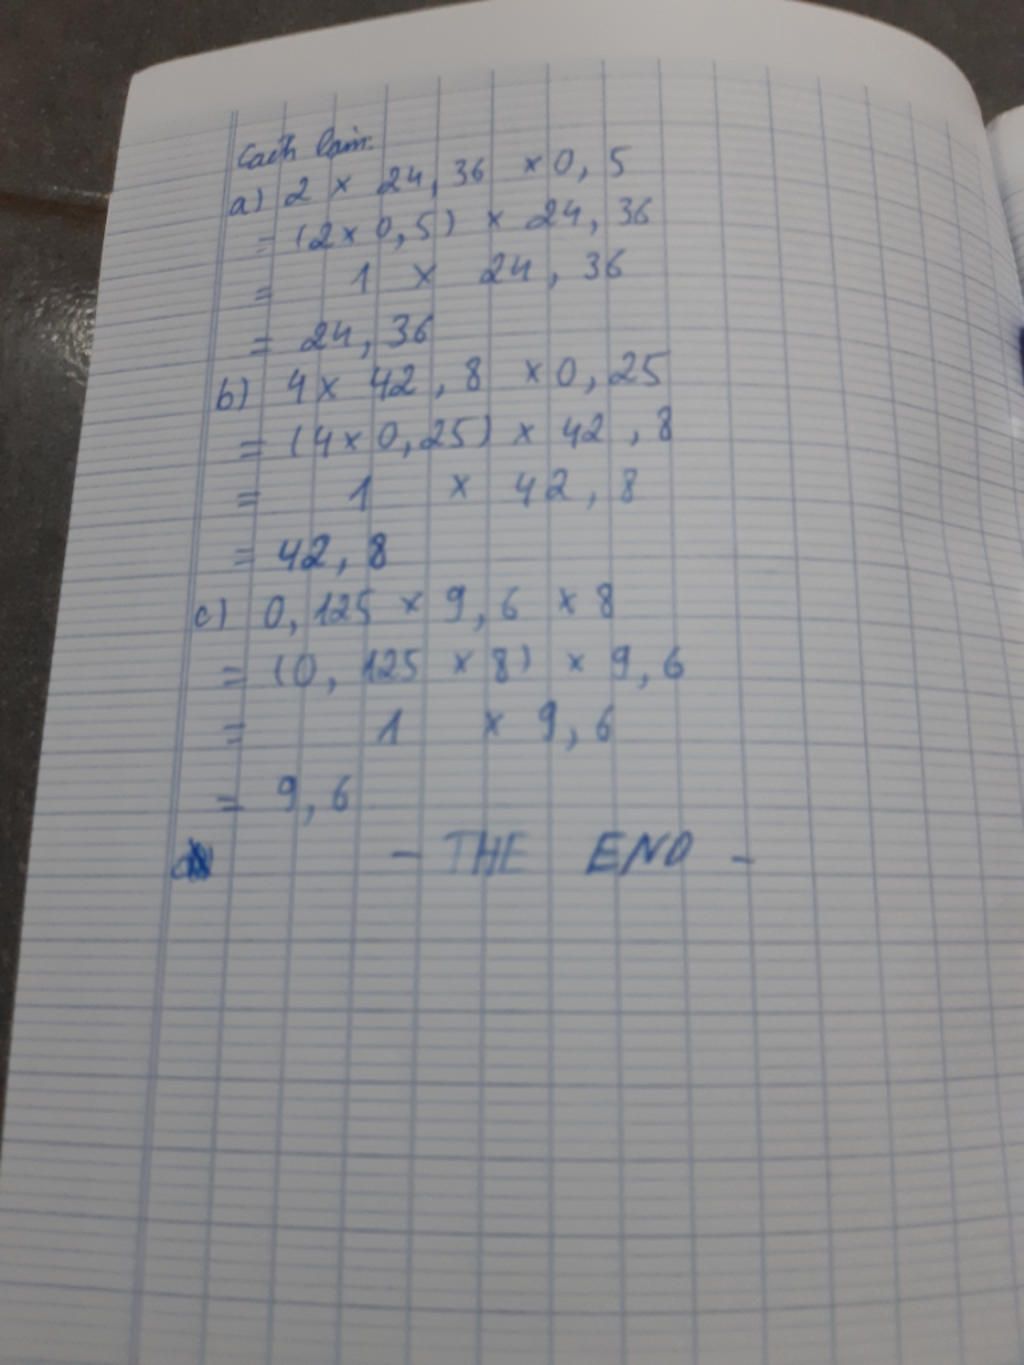 Cách làm.
a) 2 × 24,36 × 0,5
= (2 × 0,5) × 24,36
= 1 × 24,36
= 24,36
b) 4 × 42,8 × 0,25
= (4 × 0,25) × 42,8
= 1 × 42,8
= 42,8
c) 0,125 × 9,6 × 8
= (0,125 × 8) × 9,6
= 1 × 9,6
= 9,6
- THE END -